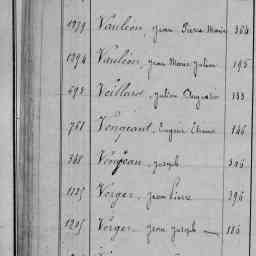 1979 Vauléon, Jean Pierre Marie 364
1394 Vauléon, Jean Marie Julien 195
693 Veillard, Julien Augustin 133
761 Vengeant, Eugène Etienne 146
368 Vengeau, Joseph 306
1225 Verger, Jean Pierre 396
1205 Verger, Jean Joseph — 186